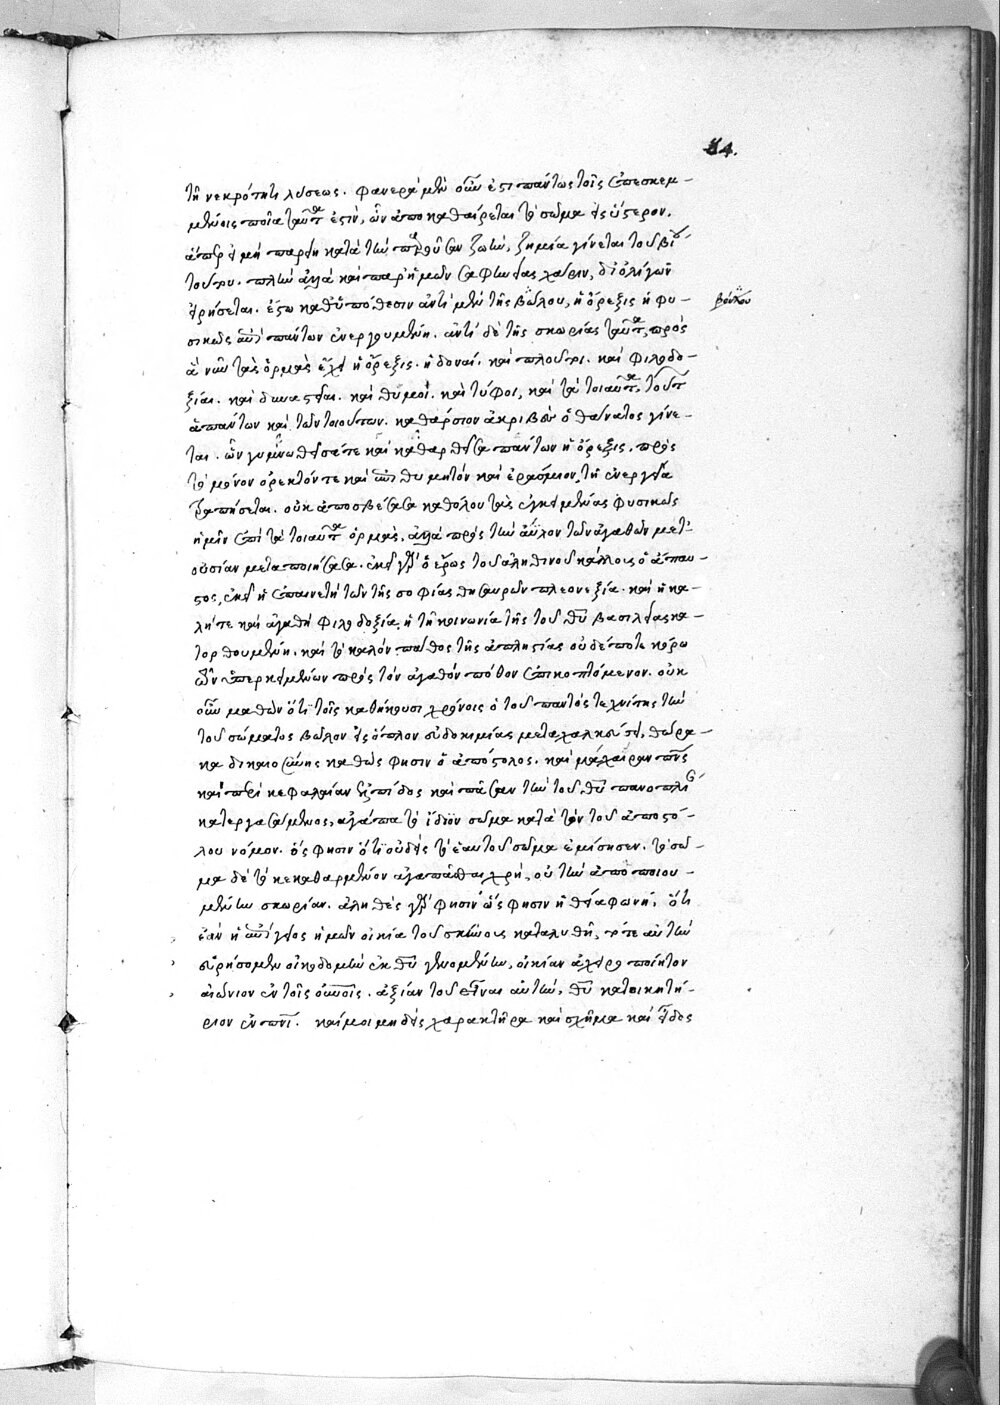 54.
τῇ νεκρότητι λύσεως. φανερὰ μὲν οὖν ἐστὶ πάντως τοῖς ἐπεσκεμ-
μένοις ποῖα ταῦτα ἐστὶν, ὧν ἀποκαθαίρεται τὸ σῶμα εἰς ὕστερον.
ἅπερ εἰ μὴ παρείη κατὰ τὴν παροῦσαν ζωὴν, ζημία γίνεται τοῦ βίου
τούτου. πλὴν ἀλλὰ καὶ παρ' ἡμῶν σαφηνείας χάριν, δι' ὀλίγων
εἰρήσεται. ἔστω καθ' ὑπόθεσιν ἀντὶ μὲν τῆς βώλου, ἡ ὄρεξις ἡ φυ-
βώλου
σικῶς ἐπὶ πάντων ἐνεργουμένη. ἀντὶ δὲ τῆς σκωρίας ταῦτα, πρὸς
ἃ νῦν τὰς ὁρμὰς ἔχει ἡ ὄρεξις. ἡδοναί. καὶ πλοῦτοι. καὶ φιλοδο-
ξίαι. καὶ δυναστεῖαι. καὶ θυμοί. καὶ τύφοι, καὶ τὰ τοιαῦτα, τούτων
ἁπάντων καὶ τῶν τοιούτων. καθάρσιον ἀκριβὲς ὁ θάνατος γίνε-
ται. ὧν γυμνωθεῖσά τε καὶ καθαρθεῖσα πάντων ἡ ὄρεξις. πρὸς
τὸ μόνον ὀρεκτόν τε καὶ ἐπιθυμητὸν καὶ ἐράσμιον τῇ ἐνεργείᾳ
τραπήσεται. οὐκ ἀποσβέσασα καθόλου τὰς ἐγκειμένας φυσικῶς
ἡμῖν ἐπὶ τὰ τοιαῦτα ὁρμὰς, ἀλλὰ πρὸς τὴν ἄϋλον τῶν ἀγαθῶν μετ-
ουσίαν μεταποιήσασα. ἐκεῖ γὰρ ὁ ἔρως τοῦ ἀληθινοῦ κάλλους ὁ ἄπαυ-
στος, ἐκεῖ ἡ ἐπαινετὴ τῶν τῆς σοφίας θησαυρῶν πλεονεξία. καὶ ἡ κα-
λή τε καὶ ἀγαθὴ φιλοδοξία ἡ τῇ κοινωνίᾳ τῆς τοῦ θεοῦ βασιλείας κα-
τορθουμένη. καὶ τὸ καλὸν πάθος τῆς ἀπληστίας οὐδέποτε κόρῳ
τῶν ὑπερκειμένων πρὸς τὸν ἀγαθὸν πόθον ἐπικοπτόμενον. οὐκ
οὖν μαθὼν ὅτι τοῖς καθήκουσι χρόνοις ὁ τοῦ παντὸς τεχνίτης τὴν
τοῦ σώματος βῶλον εἰς ὅπλον εὐδοκιμίας μεταχαλκεύσει, θώρα-
κα δικαιοσύνης καθώς φησιν ὁ ἀπόστολος. καὶ μάχαιραν πνεύματος
καὶ περικεφαλαίαν ἐλπίδος καὶ πᾶσαν τὴν τοῦ θεοῦ πανοπλίαν
κατεργασάμενος, ἀγάπα τὸ ἴδιον σῶμα κατὰ τὸν τοῦ ἀποστό-
λου νόμον. ὅς φησιν ὅτι οὐδεὶς τὸ ἑαυτοῦ σῶμα ἐμίσησεν. τὸ σῶ-
μα δὲ τὸ κεκαθαρμένον ἀγαπᾶσθαι χρή, οὐ τὴν ἀποποιου-
μένην σκωρίαν. ἀληθὲς γάρ φησιν ὥς φησιν ἡ θεία φωνή, ὅτι
ἐὰν ἡ ἐπίγειος ἡμῶν οἰκία τοῦ σκήνους καταλυθῇ, τότε αὐτὴν
εὑρήσομεν οἰκοδομὴν ἐκ θεοῦ γενομένην, οἰκίαν ἀχειροποίητον
αἰώνιον ἐν τοῖς οὐρανοῖς. ἀξίαν τοῦ εἶναι αὐτὴν, θεοῦ κατοικητή-
ριον ἐν πνεύματι. καί μοι μηδεὶς χαρακτῆρα καὶ σχῆμα καὶ εἶδος